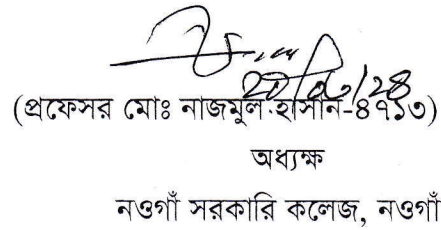 (প্রফেসর মোঃ নাজমুল হাসান-৪৭১৩)
অধ্যক্ষ
নওগাঁ সরকারি কলেজ, নওগাঁ